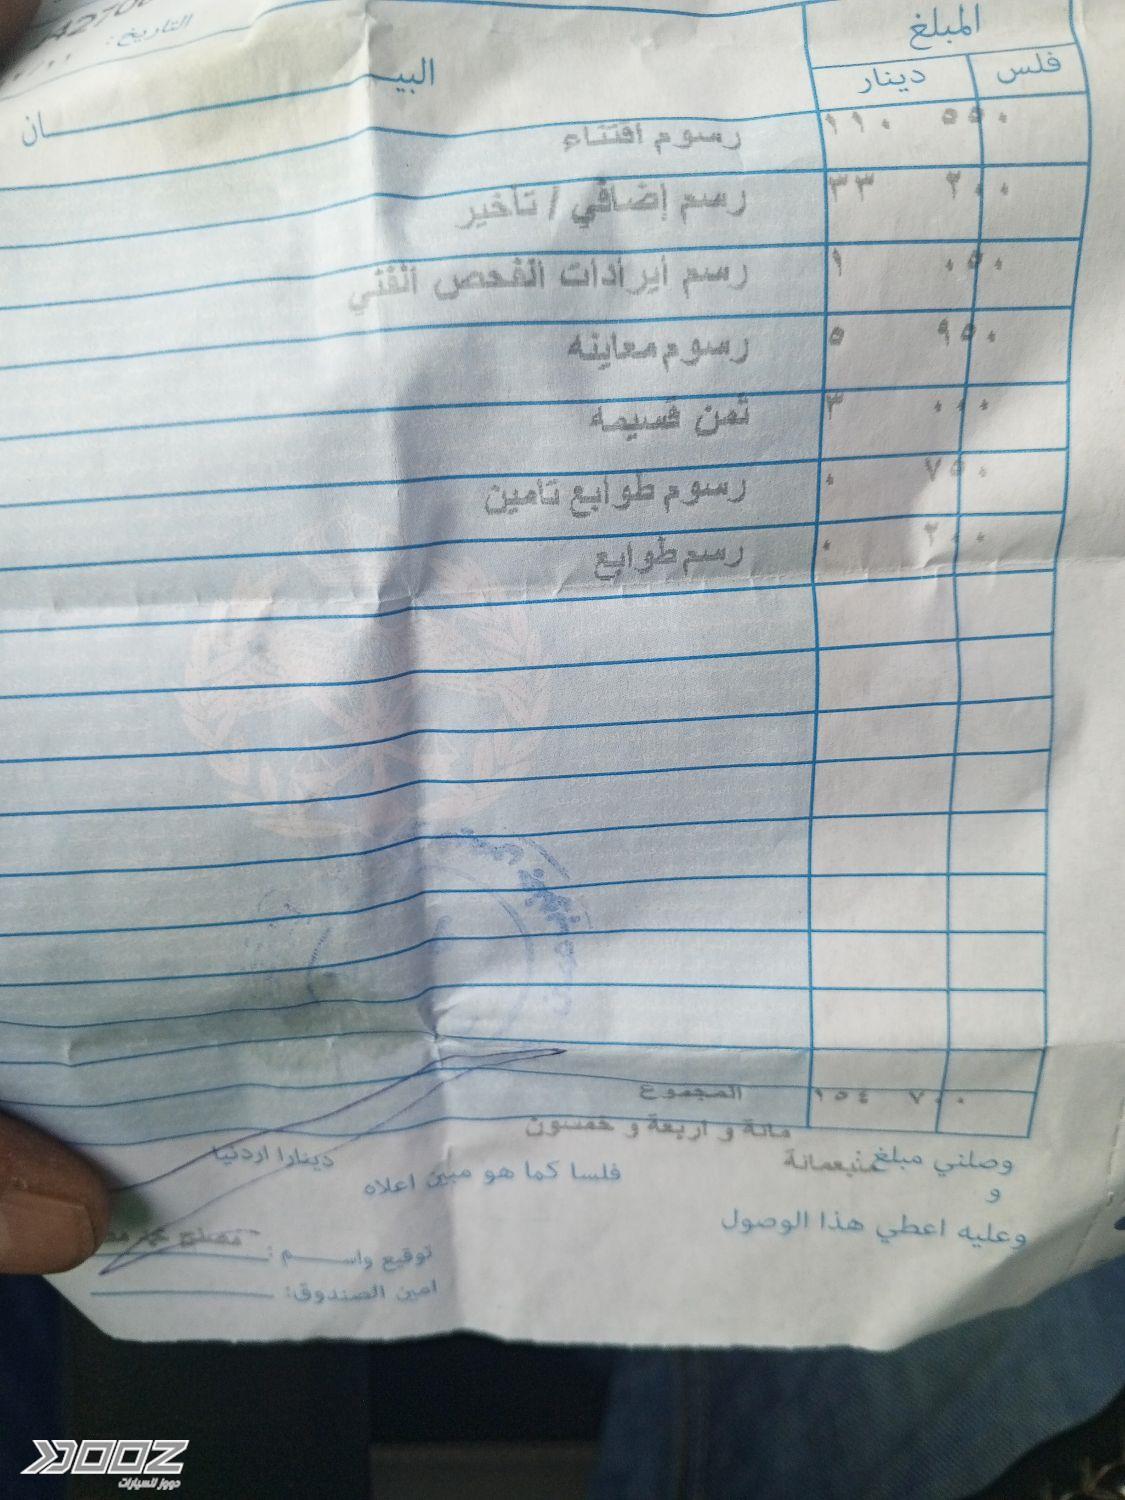 427
التاريخ:
المبلغ
فلس دينار البيـــــــان
٥٥٠ ١١٠ رسوم اقتناء
٢٠٠ ٣٣ رسم إضافي / تأخير
٠٥٠ ١ رسم أيرادات الفحص الفني
٩٥٠ ٥ رسوم معاينه
٠٠٠ ٣ ثمن قسيمه
٧٥٠ ٠ رسوم طوابع تامين
٢٠٠ ٠ رسم طوابع
٧٠٠ ١٥٤ المجموع
مائة و اربعة و خمسون
وصلني مبلغ: دينارا اردنيا
و فلسا كما هو مبين اعلاه
وعليه اعطي هذا الوصول
توقيع واســـم :
امين الصندوق:
DOOZ
دووز للسيارات